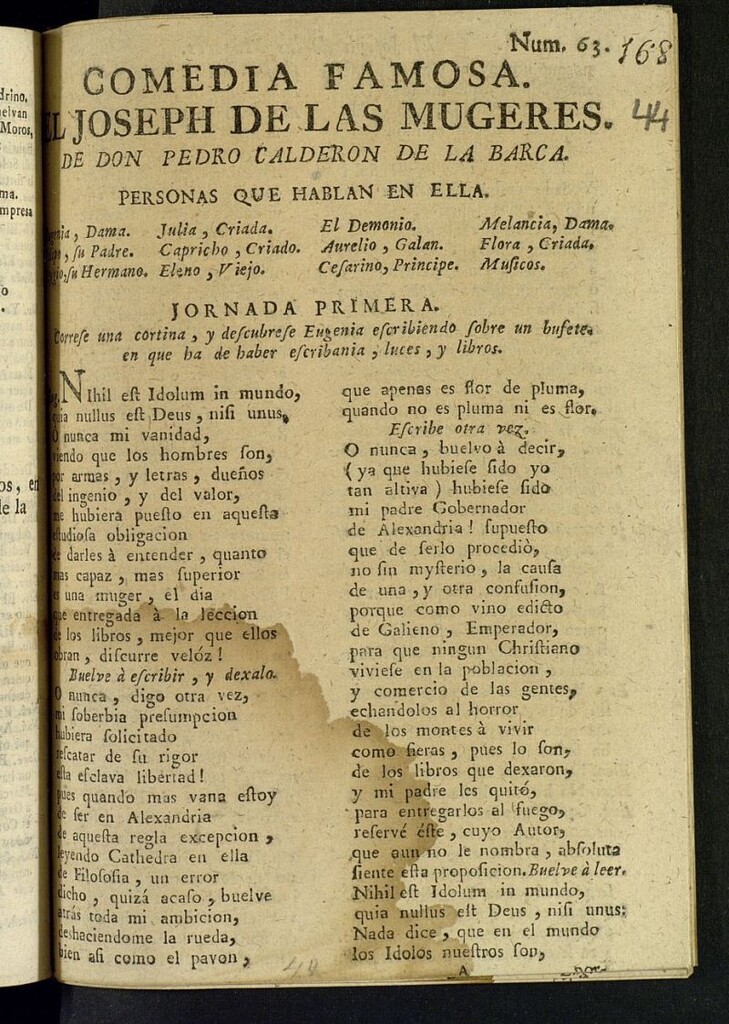 drino,
elvan
Moros,
ma.
mpresa
o
os, en
de la
Num. 63. 168
COMEDIA FAMOSA.
EL JOSEPH DE LAS MUGERES. 44
DE DON PEDRO CALDERON DE LA BARCA.
PERSONAS QUE HABLAN EN ELLA.
nia, Dama. Julia, Criada. El Demonio. Melancia, Dama.
po, su Padre. Capricho, Criado. Aurelio, Galan. Flora, Criada.
gio, su Hermano. Eleno, Viejo. Cesarino, Principe. Musicos.
JORNADA PRIMERA.
Correse una cortina, y descubrese Eugenia escribiendo sobre un bufete,
en que ha de haber escribania, luces, y libros.
Eug. NIhil est Idolum in mundo,
quia nullus est Deus, nisi unus,
O nunca mi vanidad,
viendo que los hombres son,
por armas, y letras, dueños
del ingenio, y del valor,
me hubiera puesto en aquesta
estudiosa obligacion
de darles à entender, quanto
mas capaz, mas superior
es una muger, el dia
que entregada à la leccion
de los libros, mejor que ellos
obran, discurre velóz!
Buelve à escribir, y dexalo.
O nunca, digo otra vez,
mi soberbia presumpcion
hubiera solicitado
rescatar de su rigor
esta esclava libertad!
pues quando mas vana estoy
de ser en Alexandria
de aquesta regla excepcion,
leyendo Cathedra en ella
de Filosofia, un error
dicho, quizá acaso, buelve
atrás toda mi ambicion,
deshaciendome la rueda,
bien asi como el pavon,
que apenas es flor de pluma,
quando no es pluma ni es flor.
Escribe otra vez.
O nunca, buelvo à decir,
(ya que hubiese sido yo
tan altiva) hubiese sido
mi padre Gobernador
de Alexandria! supuesto
que de serlo procediò,
no sin mysterio, la causa
de una, y otra confusion,
porque como vino edicto
de Galieno, Emperador,
para que ningun Christiano
viviese en la poblacion,
y comercio de las gentes,
echandolos al horror
de los montes à vivir
como fieras, pues lo son,
de los libros que dexaron,
y mi padre les quitó,
para entregarlos al fuego,
reservé éste, cuyo Autor,
que aun no le nombra, absoluta
siente esta proposicion. Buelve à leer.
Nihil est Idolum in mundo,
quia nullus est Deus, nisi unus:
Nada dice, que en el mundo
los Idolos nuestros son,
A por-